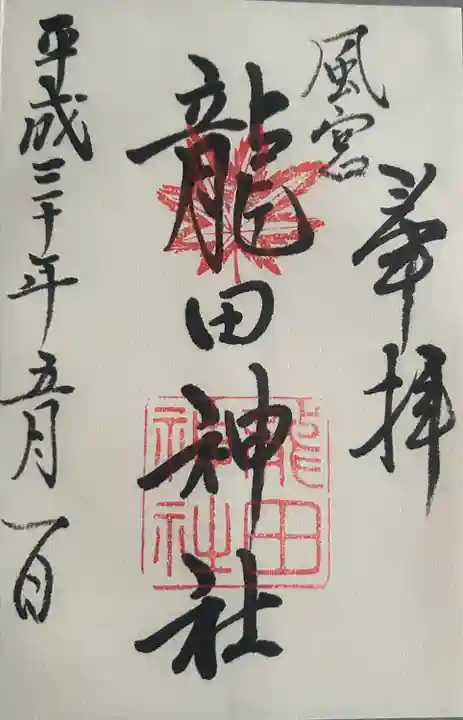 奉拝
風宮
龍田神社
龍田
神社
平成三十年五月一日